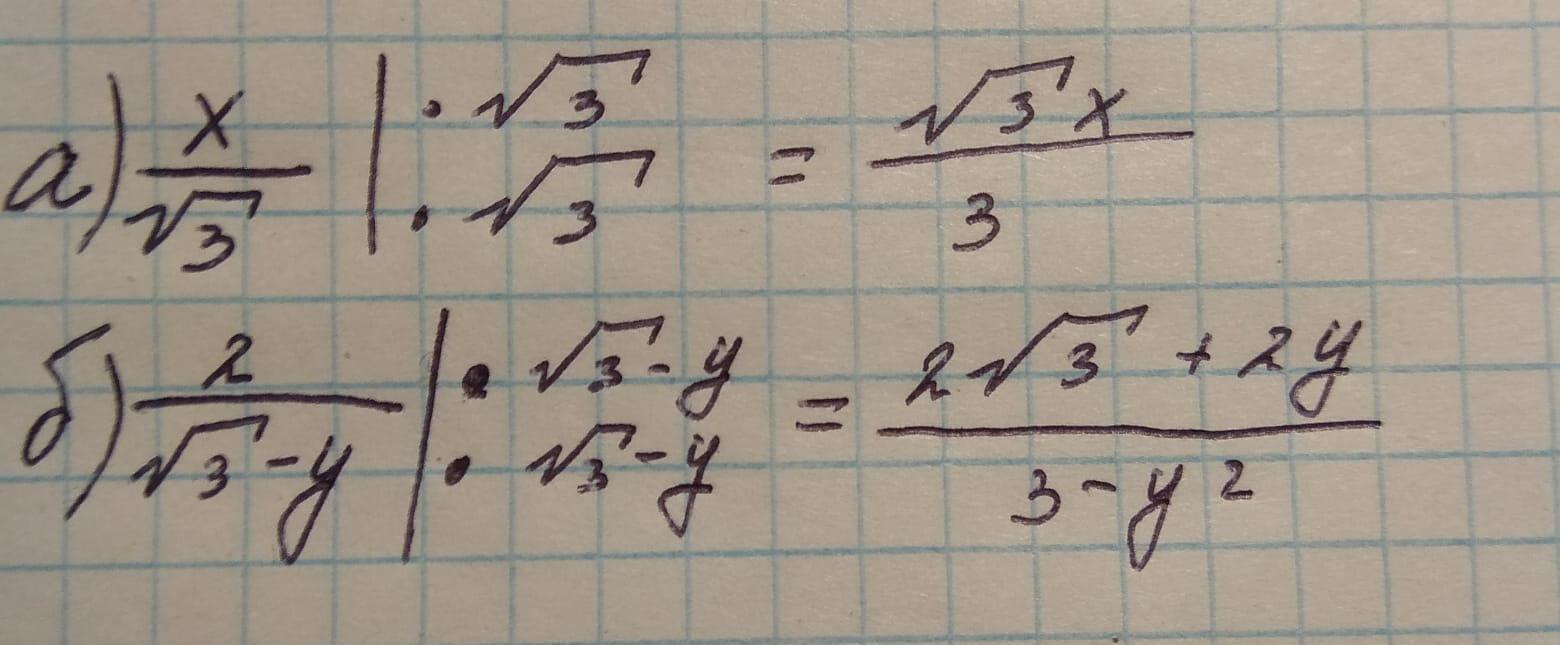 а) x/√3 | · √3 / · √3 = √3 x / 3
б) 2/(√3 - y) | · √3 - y / · √3 - y = (2√3 + 2y)/(3 - y²)